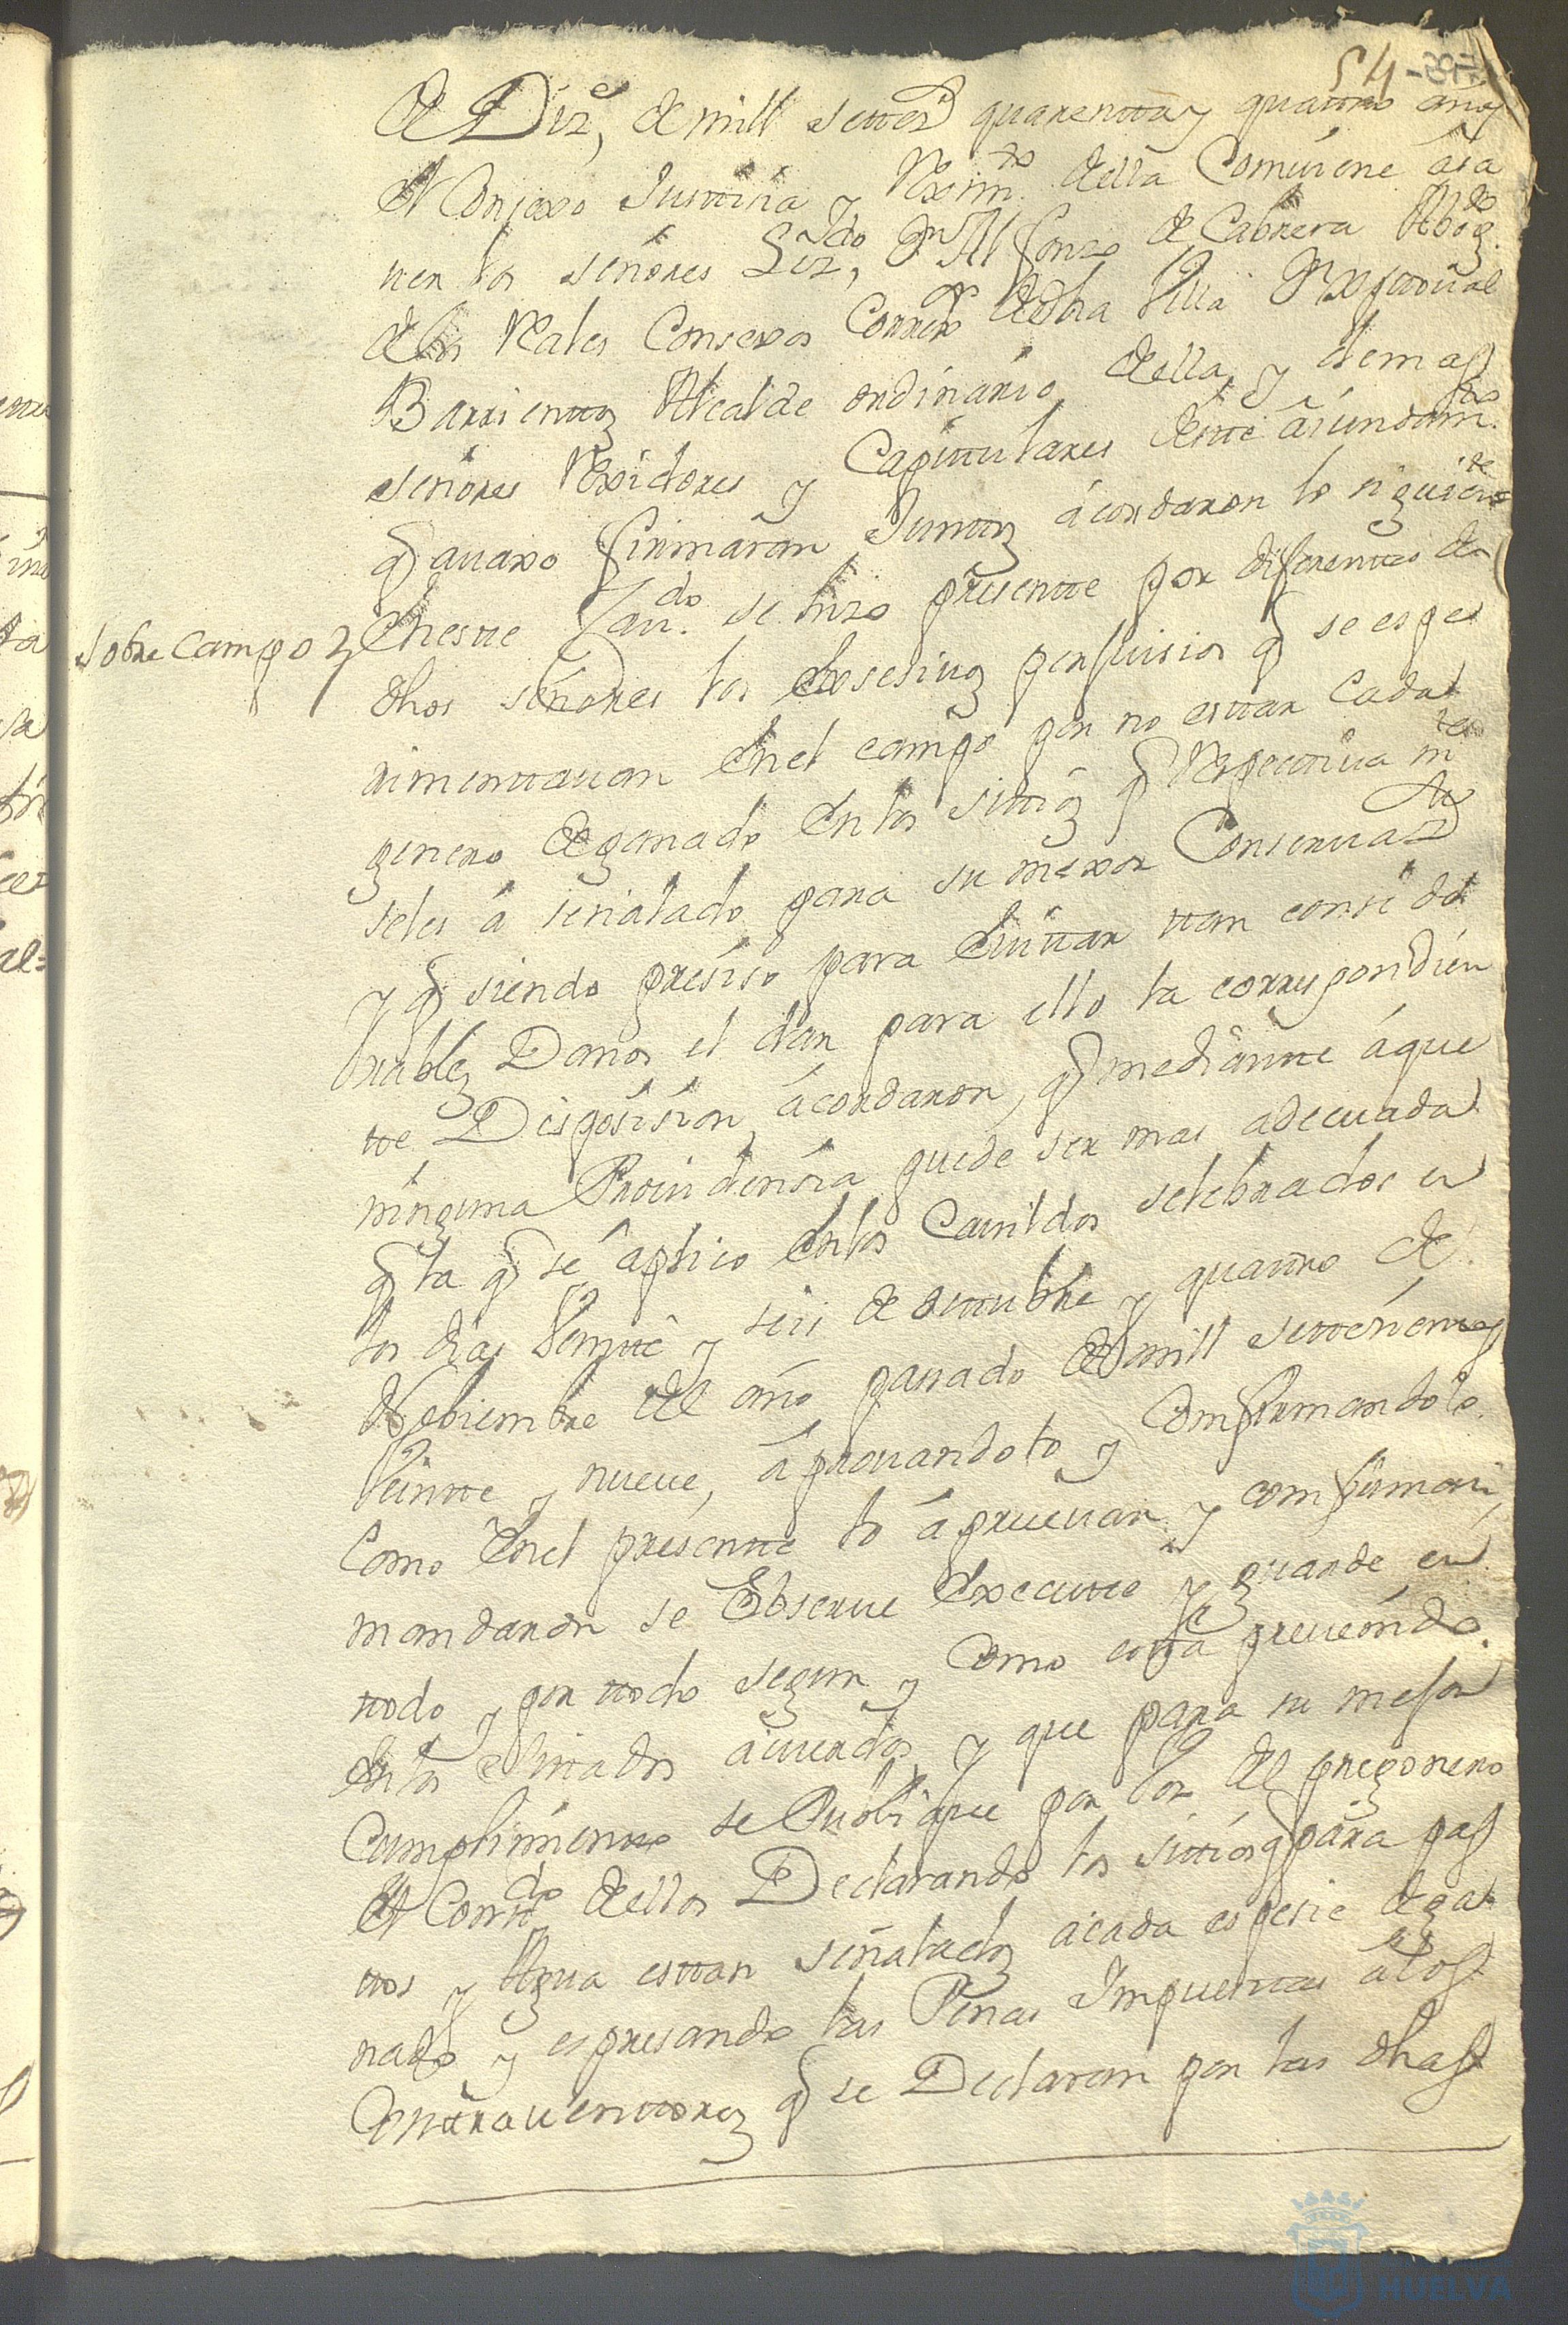 54
de Diz.e, de mill settez.s quarentta y quattro años
el Consexo Justtisia y Reximto della Comuiene asa
uer los señores Lizdo, Dn Alfonso de Cabrera Abogdo
delos Reales Consexos Correxor desta Villa Dn
Barrienttos Alcalde ordinario della, y demas
señores Rexidores y Capittulares deste aiundamto
q auaxo firmaran Junttos acordaron lo siguiente
Sobre Campos
Eneste Caudo se hizo presentte por diferenttes de
dhos señores los exsesiuos perjuisios q se espe
rimenttauan enel campo por no esttar cada
genero de ganado en los sittios q Respecttiuamte
seles a señalado para su mexor Conseruaz
y q siendo presiso para euittar ttan conside
rables Daños el dar para ello la correspondien
tte Disposision, acordaron, q mediantte aque
ninguna Prouidensia puede ser mas adecuada
q la q se aplico en los Cauildos selebrados en
los dias Veintte y seis de octtubre y quattro de
Nobiembre del año pasado de mill settesienttos
Veintte y nueue, aprouandolo y Comfirmandolo
Como enel presentte lo aprueuan y comfirman,
mandaron se Obserue executte y guarde en
ttodo y por ttodo segun y Como esta preuenido
en los Cittados acuerdos, y que para su mejor
Cumplimientto se Publique por Voz del pregonero
el Contdo dellos Declarando los sittios q para pas
ttos y Agua esttan señalados acada espesie de ga
nado y espresando las Penas Impuesttas alos
Conttrauenttores q se Declaran por las dhas
HUELVA